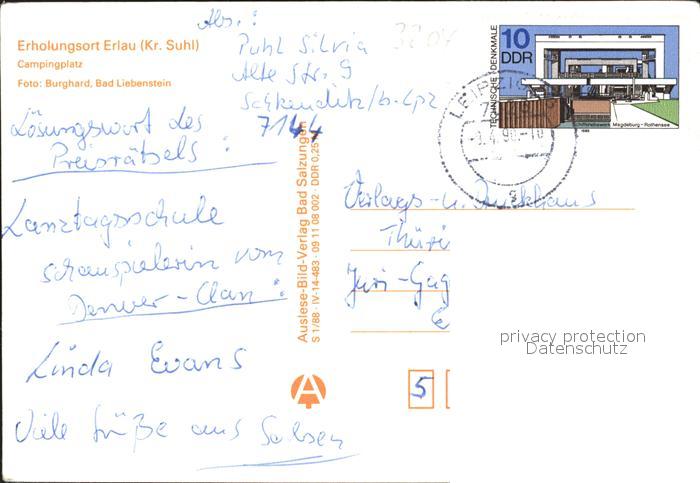 Abs.:
Puhl Silvia
Alte Str. 9
Schkeuditz/b. Lpz
7144
3204
Erholungsort Erlau (Kr. Suhl)
Campingplatz
Foto: Burghard, Bad Liebenstein
Lösungswort des
Preisrätsels:
Ganztagsschule
schauspielerin vom
Denver-Clan:
Linda Evans
Viele Grüße aus
Auslese-Bild-Verlag Bad Salzungen
S 1/88 · IV-14-483 · 09 11 08 002 · DDR 0,25
TECHNISCHE DENKMALE
10
DDR
Magdeburg-Rothensee
Verlags- u. Druckhaus
Thüri
Juri-Gag
5
A
privacy protection
Datenschutz